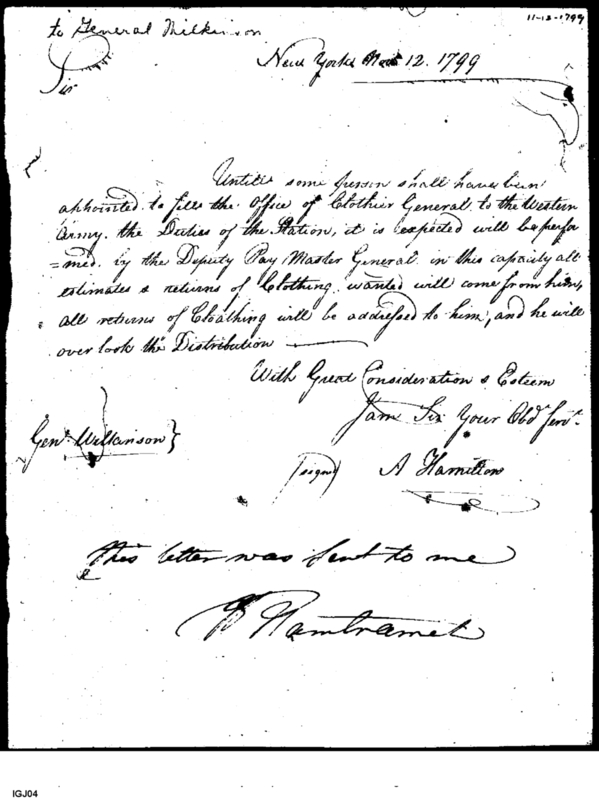 11-12-1799
to General Wilkinson
New York Nov 12. 1799
Sir
Untill some person shall have been
appointed to fill the Office of Clothier General to the Western
Army. the Duties of the Station, it is expected will be perfor
=med. by the Deputy Pay Master General in this capacity all
estimates & returns of Clothing wanted will come from him,
all returns of Cloathing will be addressed to him, and he will
over look the Distribution
With Great Consideration & Esteem
I am Sir Your Obd. Servt.
Genl. Wilkinson}
(signed) A Hamilton
This letter was sent to me
Hamtramck
IGJ04